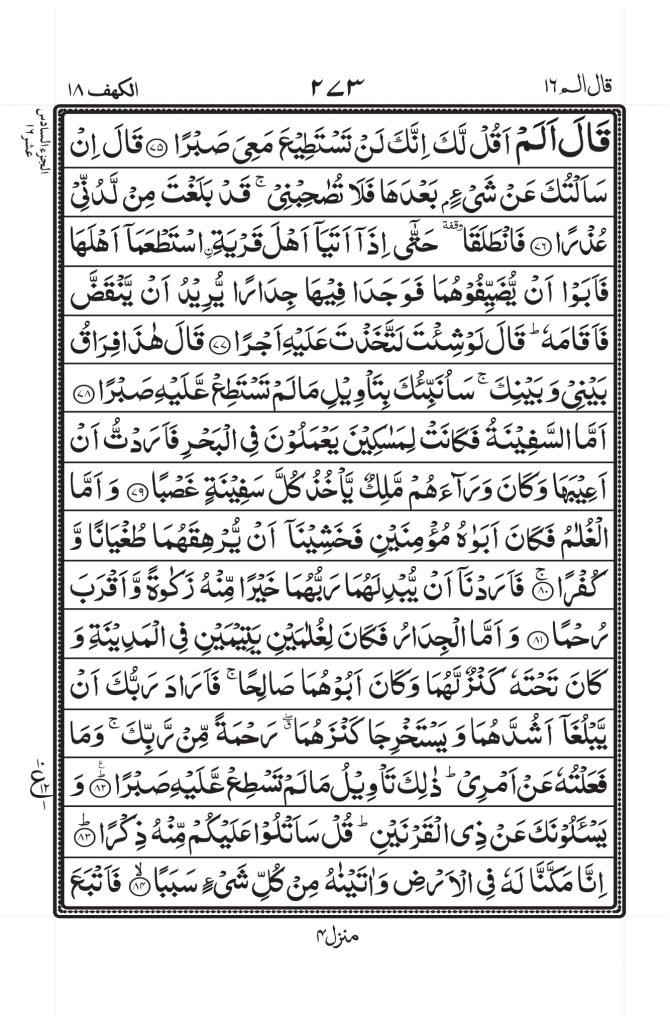 قال الم ١٦
٢٧٣
الكهف ١٨
الجزء السادس
عشر ١٦
قَالَ اَلَمْ اَقُلْ لَّكَ اِنَّكَ لَنْ تَسْتَطِيْعَ مَعِيَ صَبْرًا ﴿۷۵﴾ قَالَ اِنْ
سَاَلْتُكَ عَنْ شَيْءٍۭ بَعْدَهَا فَلَا تُصٰحِبْنِيْ ۚ قَدْ بَلَغْتَ مِنْ لَّدُنِّيْ
عُذْرًا ﴿۷۶﴾ فَانْطَلَقَا ۥ وقفة حَتّٰۤى اِذَاۤ اَتَيَاۤ اَهْلَ قَرْيَةِ ۣاسْتَطْعَمَاۤ اَهْلَهَا
فَاَبَوْا اَنْ يُّضَيِّفُوْهُمَا فَوَجَدَا فِيْهَا جِدَارًا يُّرِيْدُ اَنْ يَّنْقَضَّ
فَاَقَامَهٗ ؕ قَالَ لَوْ شِئْتَ لَتَّخَذْتَ عَلَيْهِ اَجْرًا ﴿۷۷﴾ قَالَ هٰذَا فِرَاقُ
بَيْنِيْ وَ بَيْنِكَ ۚ سَاُنَبِّئُكَ بِتَاْوِيْلِ مَا لَمْ تَسْتَطِعْ عَّلَيْهِ صَبْرًا ﴿۷۸﴾
اَمَّا السَّفِيْنَةُ فَكَانَتْ لِمَسٰكِيْنَ يَعْمَلُوْنَ فِي الْبَحْرِ فَاَرَدْتُّ اَنْ
اَعِيْبَهَا وَكَانَ وَرَآءَهُمْ مَّلِكٌ يَّاْخُذُ كُلَّ سَفِيْنَةٍ غَصْبًا ﴿۷۹﴾ وَ اَمَّا
الْغُلٰمُ فَكَانَ اَبَوٰهُ مُؤْمِنَيْنِ فَخَشِيْنَاۤ اَنْ يُّرْهِقَهُمَا طُغْيَانًا وَّ
كُفْرًا ﴿۸۰﴾ۚ فَاَرَدْنَاۤ اَنْ يُّبْدِلَهُمَا رَبُّهُمَا خَيْرًا مِّنْهُ زَكٰوةً وَّ اَقْرَبَ
رُحْمًا ﴿۸۱﴾ وَ اَمَّا الْجِدَارُ فَكَانَ لِغُلٰمَيْنِ يَتِيْمَيْنِ فِي الْمَدِيْنَةِ وَ
كَانَ تَحْتَهٗ كَنْزٌ لَّهُمَا وَكَانَ اَبُوْهُمَا صَالِحًا ۚ فَاَرَادَ رَبُّكَ اَنْ
يَّبْلُغَاۤ اَشُدَّهُمَا وَ يَسْتَخْرِجَا كَنْزَهُمَا ۖ رَحْمَةً مِّنْ رَّبِّكَ ۚ وَمَا
فَعَلْتُهٗ عَنْ اَمْرِيْ ؕ ذٰلِكَ تَاْوِيْلُ مَا لَمْ تَسْطِعْ عَّلَيْهِ صَبْرًا ﴿۸۲﴾ؕ وَ
يَسْـَٔلُوْنَكَ عَنْ ذِي الْقَرْنَيْنِ ؕ قُلْ سَاَتْلُوْا عَلَيْكُمْ مِّنْهُ ذِكْرًا ﴿۸۳﴾ؕ
اِنَّا مَكَّنَّا لَهٗ فِي الْاَرْضِ وَاٰتَيْنٰهُ مِنْ كُلِّ شَيْءٍ سَبَبًا ﴿۸۴﴾ۙ فَاَتْبَعَ
منزل ٤